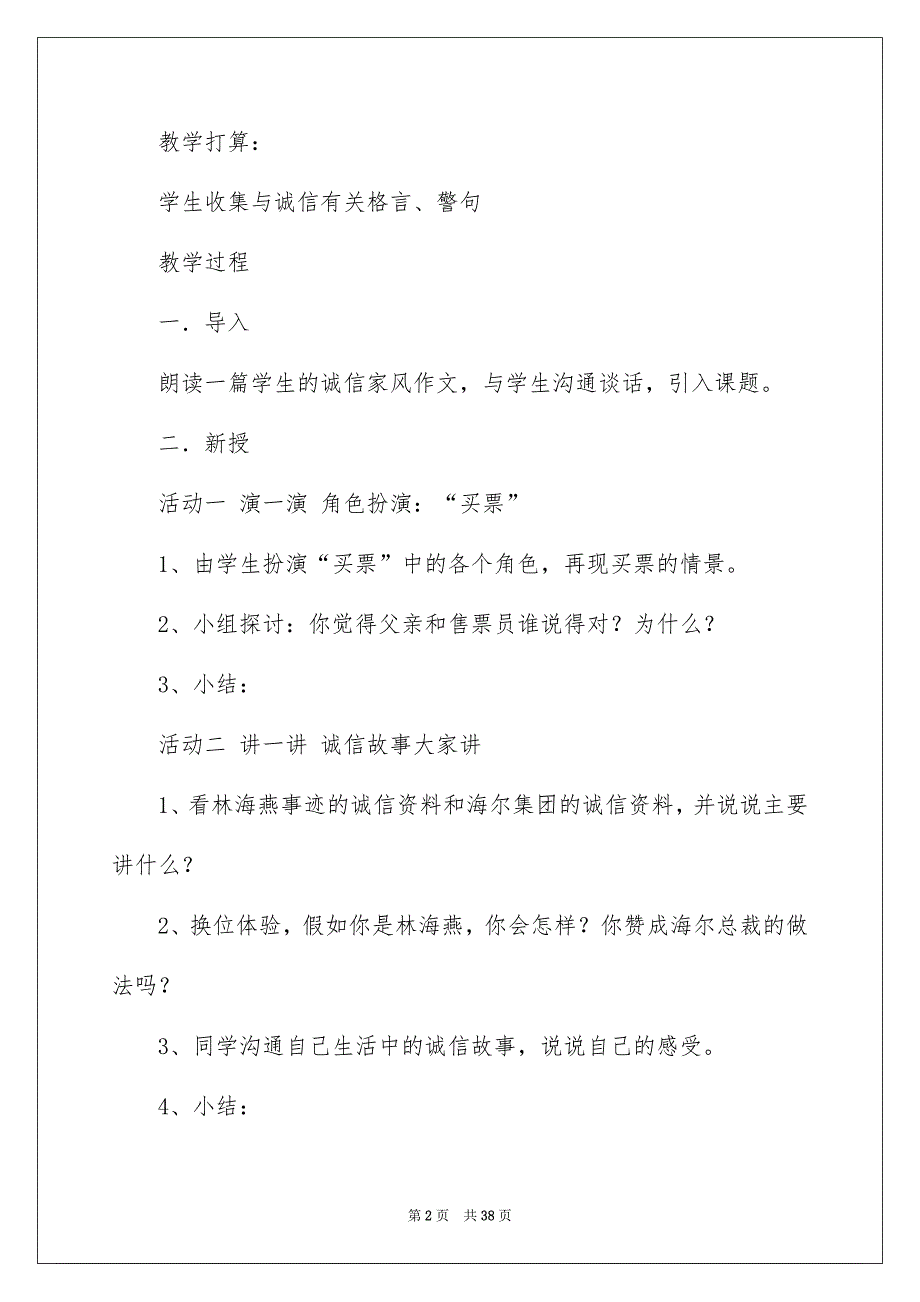 教学打算：
学生收集与诚信有关格言、警句
教学过程
一．导入
朗读一篇学生的诚信家风作文，与学生沟通谈话，引入课题。
二．新授
活动一 演一演 角色扮演：“买票”
1、由学生扮演“买票”中的各个角色，再现买票的情景。
2、小组探讨：你觉得父亲和售票员谁说得对？为什么？
3、小结：
活动二 讲一讲 诚信故事大家讲
1、看林海燕事迹的诚信资料和海尔集团的诚信资料，并说说主要
讲什么？
2、换位体验，假如你是林海燕，你会怎样？你赞成海尔总裁的做
法吗？
3、同学沟通自己生活中的诚信故事，说说自己的感受。
4、小结：
第 2 页 共 38 页